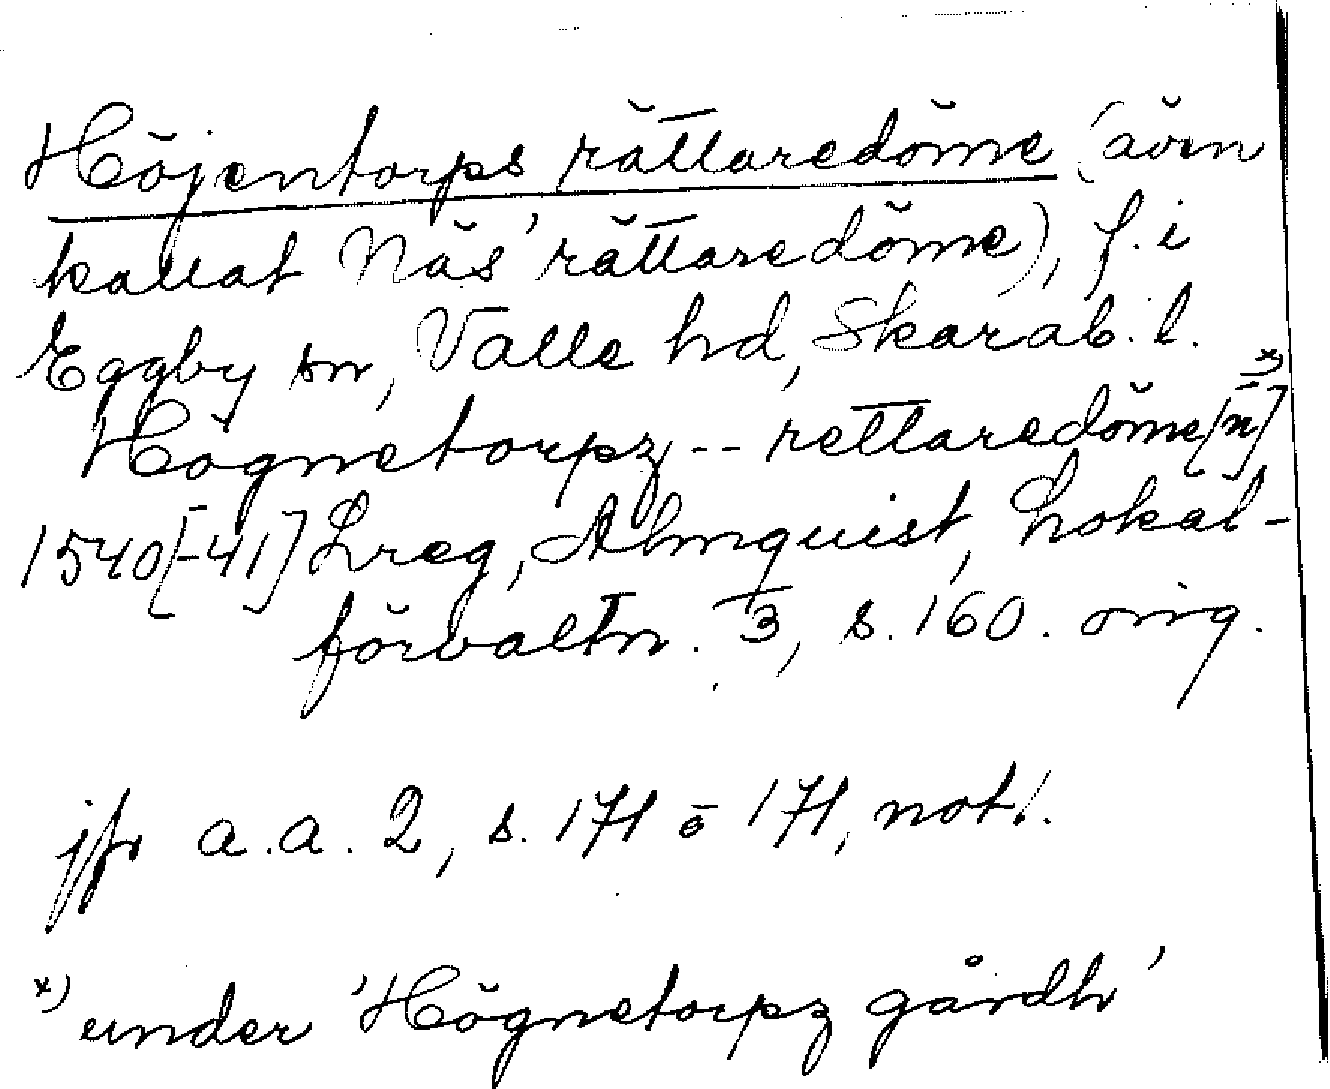 Höjentorps rättaredöme (även
kallat Näs' rättaredöme), f. i
Eggby sn, Valle hd, Skarab. l.
Högnetorpz -- rettaredöme[n] x)
1540[-41] Lreg, Almquist, Lokal-
förvaltn. 3, s. 160. orig.
jfr a.a. 2, s. 171 o 171, not 1.
x) under 'Högnetorpz gårdh'